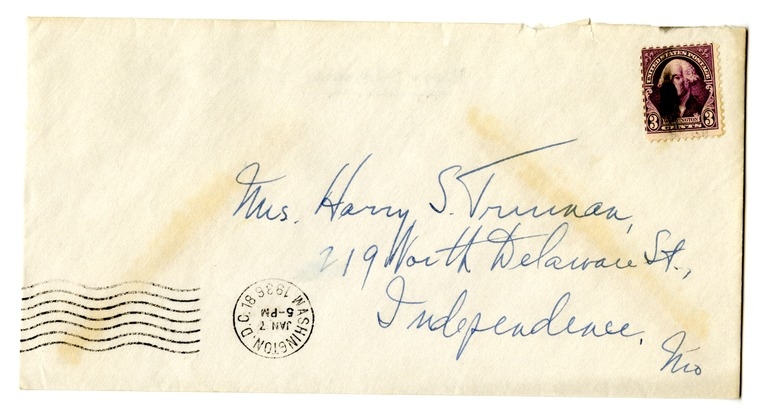 UNITED STATES POSTAGE
3 WASHINGTON 3
CENTS
Mrs. Harry S. Truman,
219 North Delaware St.,
Independence,
Mo
WASHINGTON, D.C. 18
JAN 7
5-PM
1936